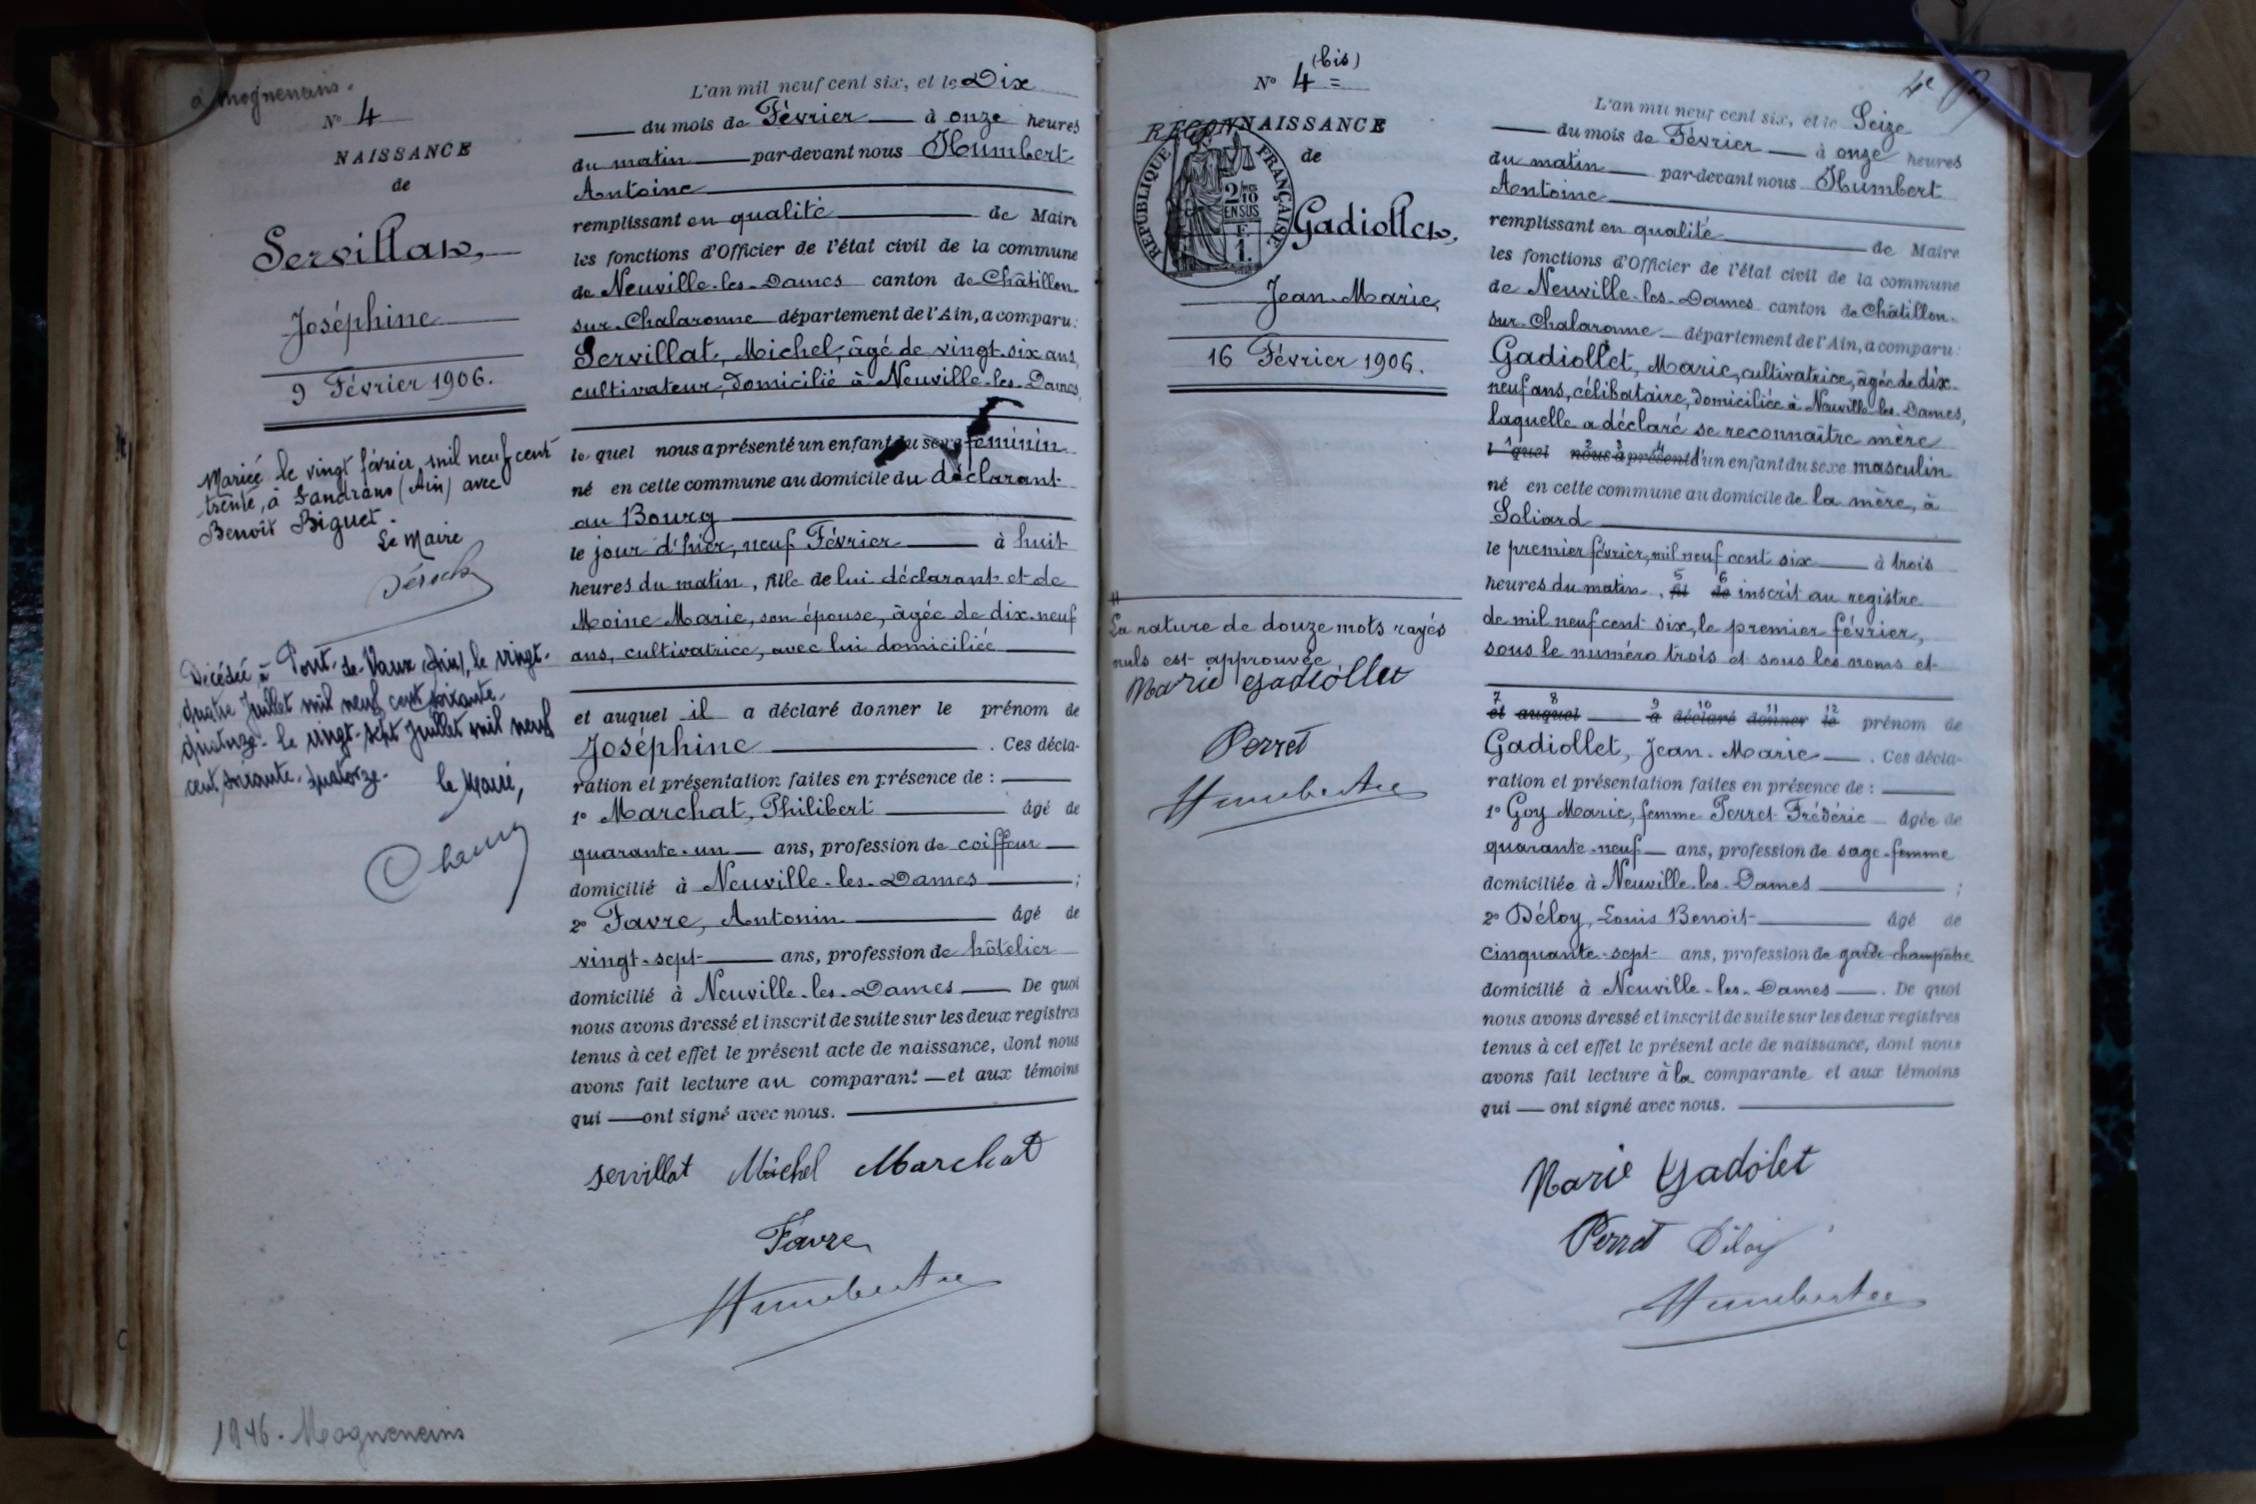 à Mogneneins.
N° 4
NAISSANCE
de
Servillat,
Joséphine
9 Février 1906.
Mariée le vingt février mil neuf cent
trente, à Sandrans (Ain) avec
Benoît Biguet.
Le Maire
Décédée à Pont-de-Vaux (Ain), le vingt-
quatre Juillet mil neuf cent soixante-
quatorze. le vingt-sept Juillet mil neuf
cent soixante-quatorze.
le Maire,
1946. Mogneneins
L'an mil neuf cent six, et le Dix
du mois de Février à onze heures
du matin par-devant nous Humbert
Antoine
remplissant en qualité de Maire
les fonctions d'Officier de l'état civil de la commune
de Neuville-les-Dames canton de Châtillon-
sur-Chalaronne département de l'Ain, a comparu:
Servillat, Michel, âgé de vingt-six ans,
cultivateur, domicilié à Neuville-les-Dames,
le quel nous a présenté un enfant du sexe féminin
né en cette commune au domicile du déclarant
au Bourg
le jour d'hier, neuf Février à huit
heures du matin, fille de lui déclarant et de
Moine Marie, son épouse, âgée de dix-neuf
ans, cultivatrice, avec lui domiciliée
et auquel il a déclaré donner le prénom de
Joséphine . Ces décla-
ration et présentation faites en présence de :
1° Marchat, Philibert âgé de
quarante-un ans, profession de coiffeur
domicilié à Neuville-les-Dames ;
2° Favre, Antonin âgé de
vingt-sept ans, profession de hôtelier
domicilié à Neuville-les-Dames De quoi
nous avons dressé et inscrit de suite sur les deux registres
tenus à cet effet le présent acte de naissance, dont nous
avons fait lecture au comparant et aux témoins
qui ont signé avec nous.
Servillat Michel Marchat
Favre
Humbert Ane
N° 4 (bis) =
RECONNAISSANCE
de
RÉPUBLIQUE FRANÇAISE
2/10
EN SUS
F.
1.
Gadiollet,
Jean-Marie,
16 Février 1906.
La rature de douze mots rayés
nuls est approuvée.
Marie Gadiollet
Perret
Humbert Ane
4e
L'an mil neuf cent six, et le Seize
du mois de Février à onze heures
du matin par-devant nous Humbert
Antoine
remplissant en qualité de Maire
les fonctions d'Officier de l'état civil de la commune
de Neuville-les-Dames canton de Châtillon-
sur-Chalaronne département de l'Ain, a comparu:
Gadiollet, Marie, cultivatrice, âgée de dix-
neuf ans, célibataire, domiciliée à Neuville-les-Dames,
laquelle a déclaré se reconnaître mère
1 2 3 4
l quel nous a présenté d'un enfant du sexe masculin
né en cette commune au domicile de la mère, à
Soliard
le premier février, mil neuf cent six à trois
5 6
heures du matin, fil de inscrit au registre
de mil neuf cent six, le premier février,
sous le numéro trois et sous les noms et
7 8 9 10 11 12
et auquel a déclaré donner le prénom de
Gadiollet, Jean-Marie . Ces décla-
ration et présentation faites en présence de :
1° Goy Marie, femme Perret Frédéric âgée de
quarante-neuf ans, profession de sage-femme
domiciliée à Neuville-les-Dames ;
2° Déloy, Louis Benoit âgé de
cinquante-sept ans, profession de garde-champêtre
domicilié à Neuville-les-Dames . De quoi
nous avons dressé et inscrit de suite sur les deux registres
tenus à cet effet le présent acte de naissance, dont nous
avons fait lecture à la comparante et aux témoins
qui ont signé avec nous.
Marie Gadiolet
Perret Déloy
Humbert Ane